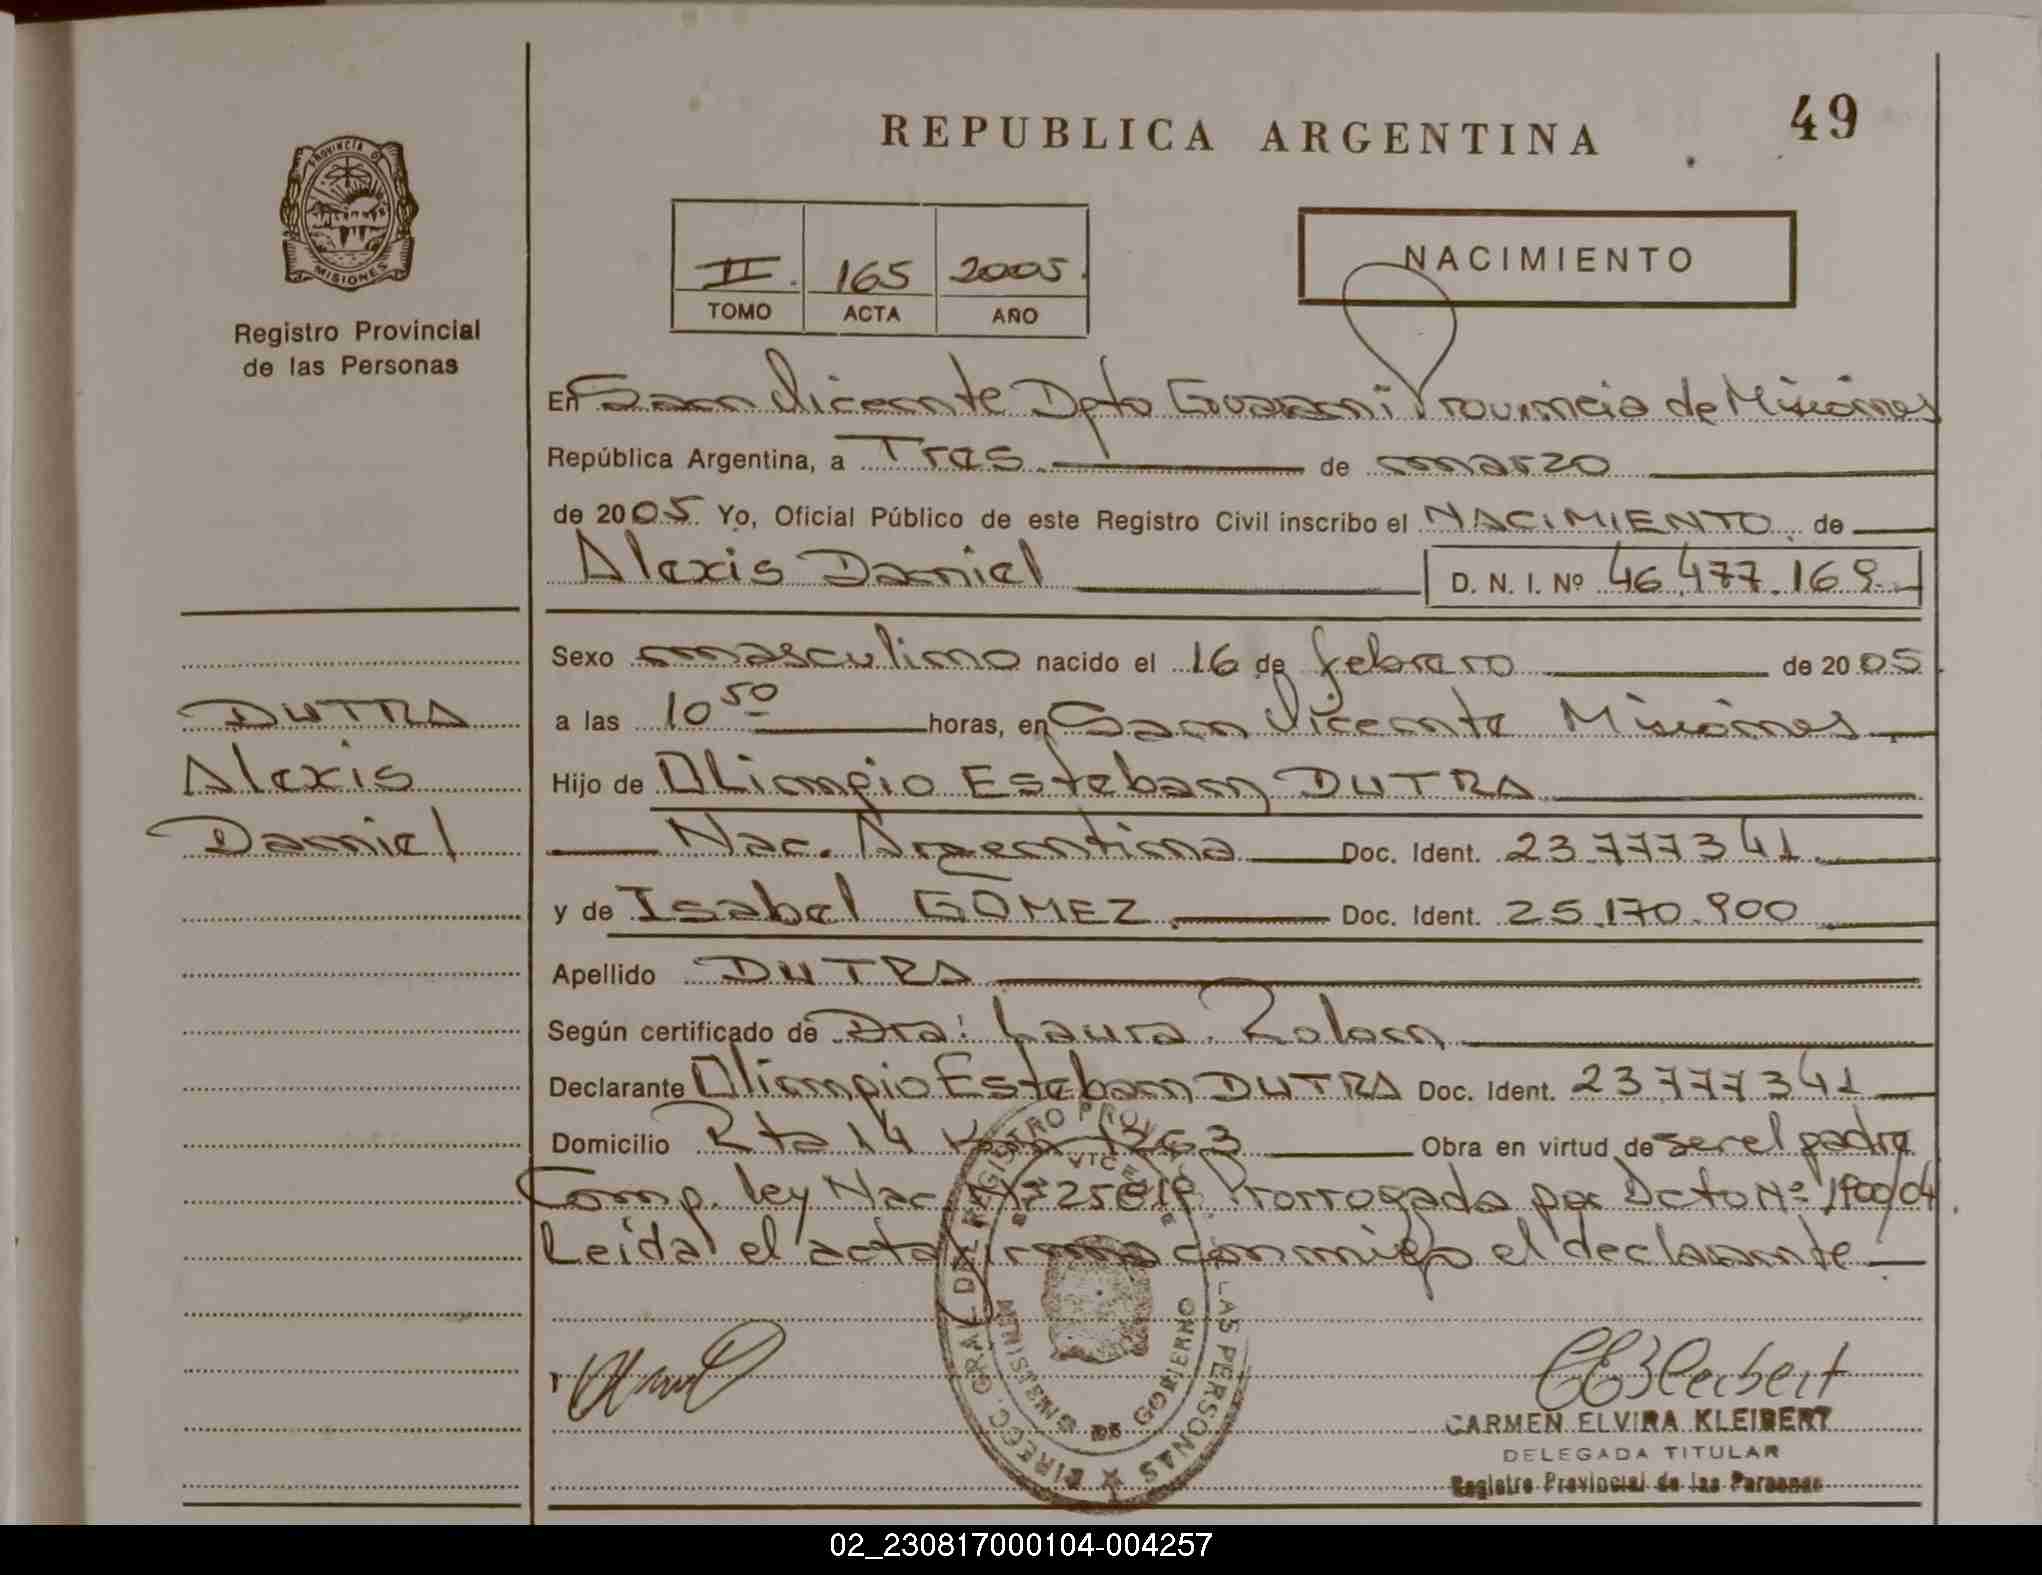 REPUBLICA ARGENTINA
49
PROVINCIA D
MISIONES
Registro Provincial
de las Personas
II. 165 2005.
TOMO ACTA AÑO
NACIMIENTO
En San Vicente Dpto Guarani Provincia de Misiones
República Argentina, a Tres de marzo
de 2005. Yo, Oficial Público de este Registro Civil inscribo el NACIMIENTO de
Alexis Daniel D. N. I. Nº 46.477.169
Sexo masculino nacido el 16 de febrero de 2005
a las 10 50 horas, en San Vicente Misiones
Hijo de Olimpio Esteban DUTRA
Nac. Argentina Doc. Ident. 23.777341
y de Isabel GOMEZ Doc. Ident. 25.170.900
Apellido DUTRA
Según certificado de Dra: Laura Rolon
Declarante Olimpio Esteban DUTRA Doc. Ident. 23.777341
Domicilio Rta 14 Km 1263 Obra en virtud de ser el padre
Comp. ley Nac. Nº 25819 Prorrogada por Dcto Nº 1900/04
Leida el acta firma conmigo el declarante
DUTRA
Alexis
Daniel
DIRECC. GRAL DEL REGISTRO PROV. LAS PERSONAS
MINISTERIO DE GOBIERNO
CEKleibert
CARMEN ELVIRA KLEIBERT
DELEGADA TITULAR
Registro Provincial de las Personas
02_230817000104-004257